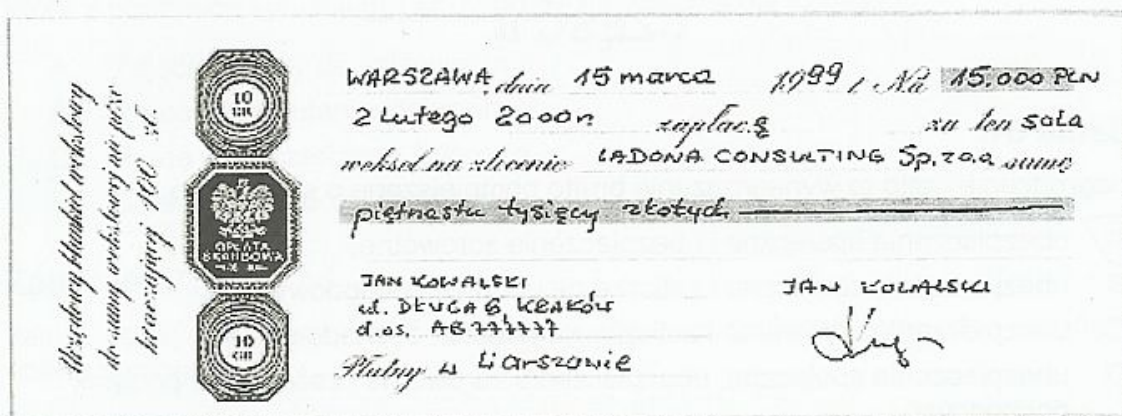 Urzędowy blankiet wekslowy
do sumy wekslowej nie prze-
kraczającej 400 zł.
10
GR
OPŁATA
SKARBOWA
10
GR
WARSZAWA, dnia 15 marca 1999 r. Na 15.000 PLN
2 Lutego 2000r zapłacę za ten sola
weksel na zlecenie LADONA CONSULTING Sp. z o.o sumę
piętnastu tysięcy złotych
JAN KOWALSKI
ul. DŁUGA 6, KRAKÓW
d.os. AB 777777
JAN KOWALSKI
Płatny w Warszawie